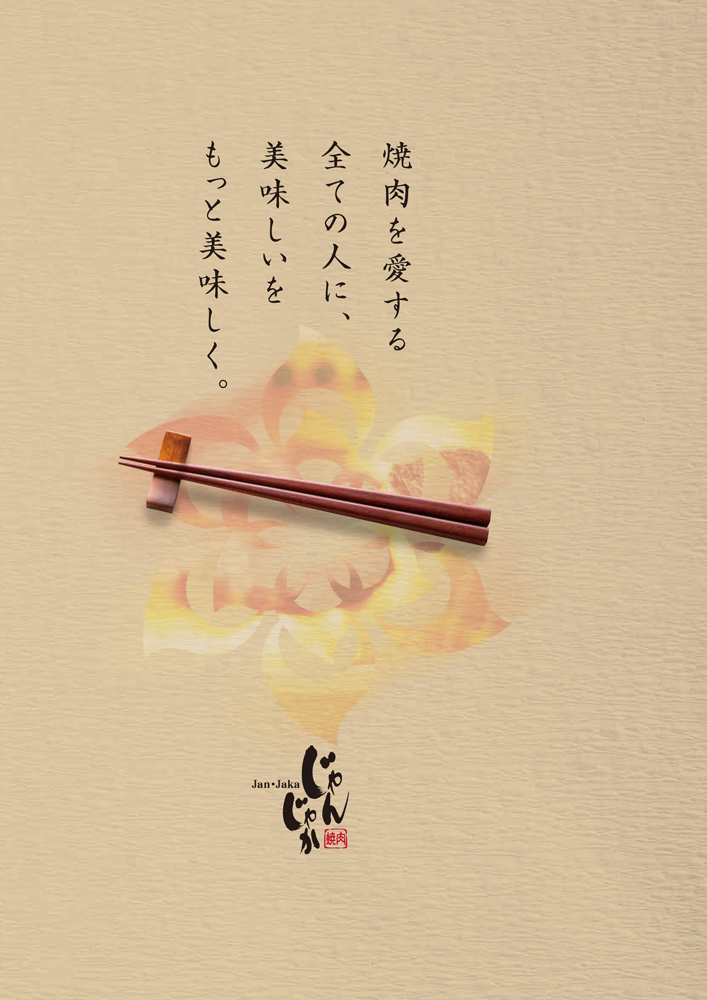 焼肉を愛する
全ての人に、
美味しいを
もっと美味しく。
Jan・Jaka
じゃん
じゃか
焼肉